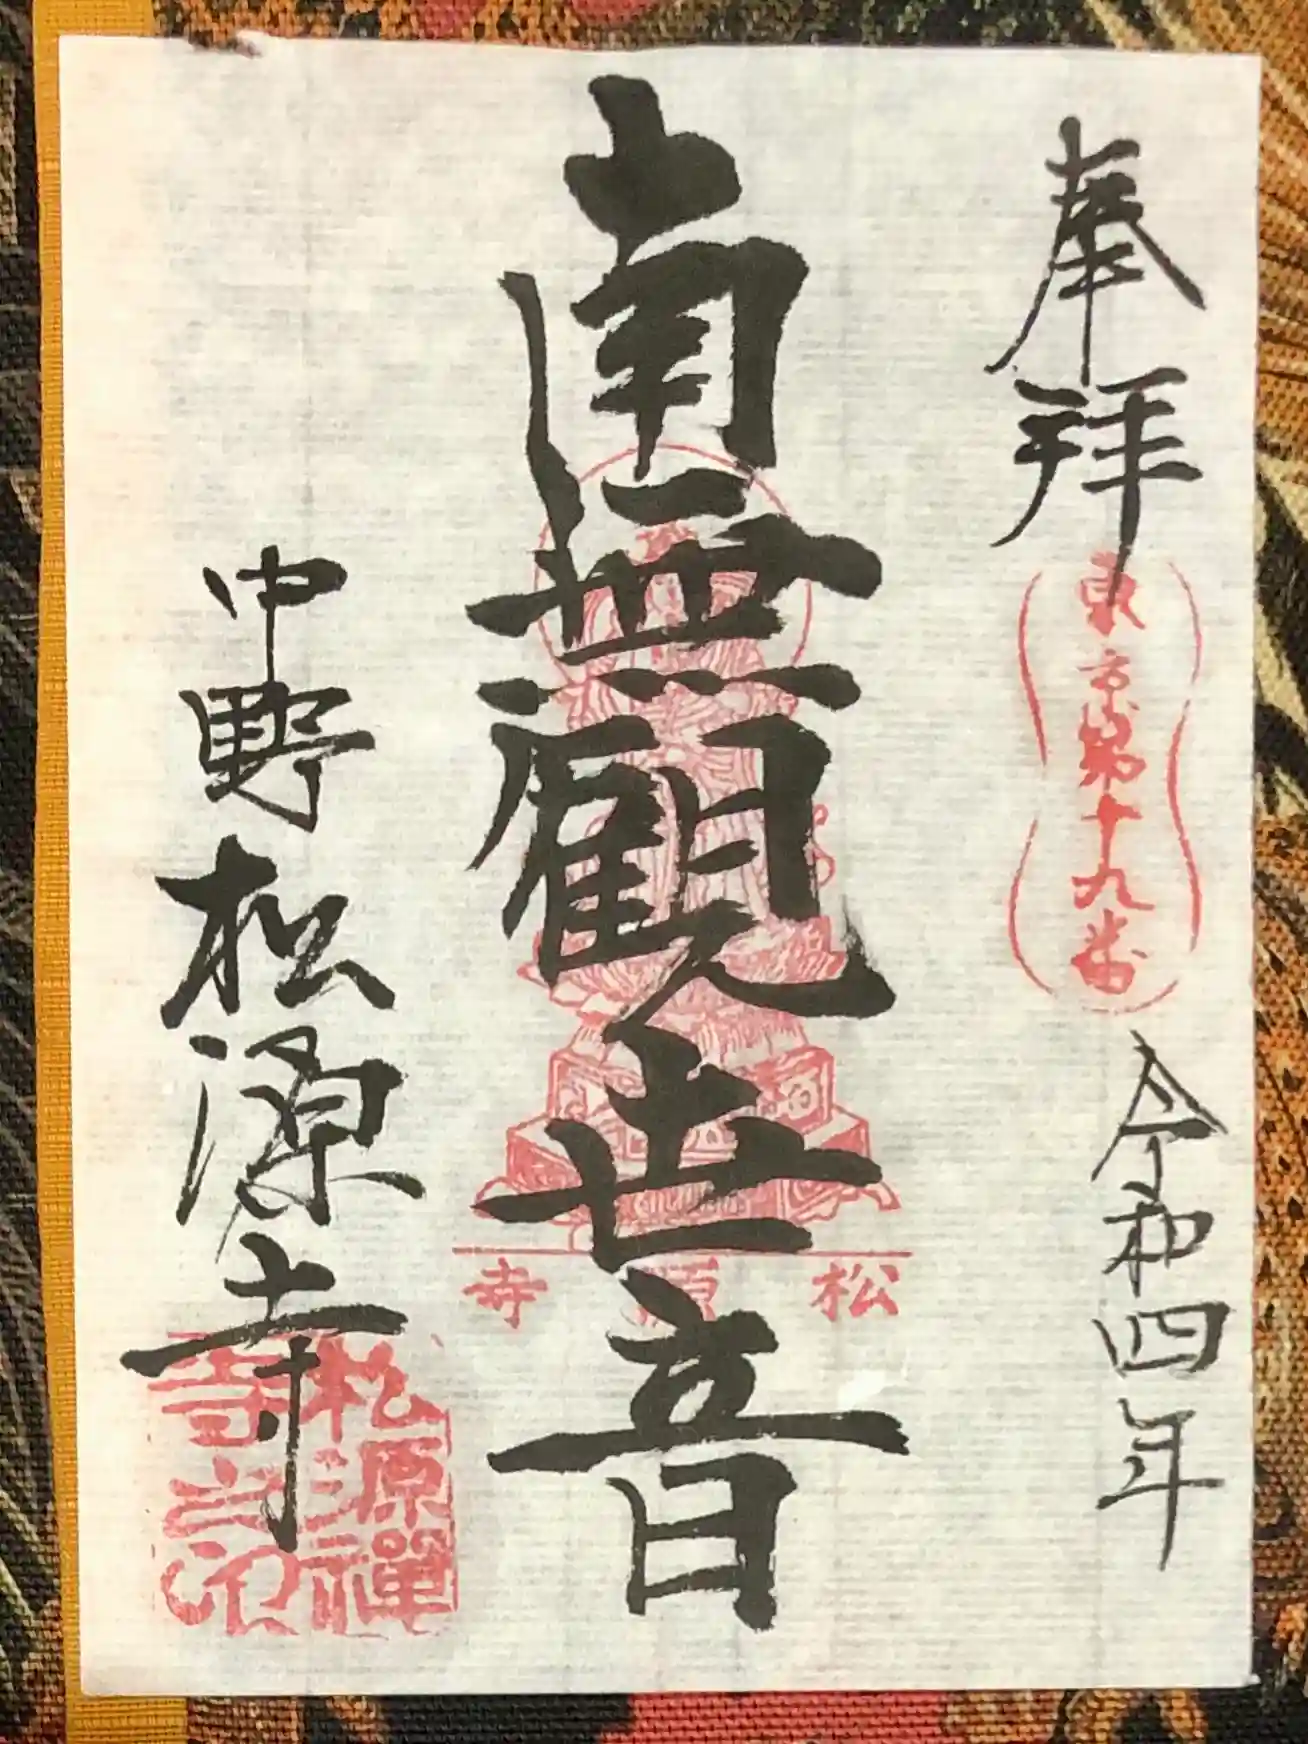 奉拝
東京第十九番
令和四年
南無観世音
松源寺
中野
松源寺
松源禅
寺之印